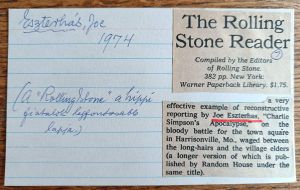 Eszterhás, Joe
1974
(A "Rolling Stone" a hippi
fiatalok legfontosabb
lapja)
The Rolling
Stone Reader
Compiled by the Editors
of Rolling Stone.
382 pp. New York:
Warner Paperback Library. $1.75.
a very
effective example of reconstructive
reporting by Joe Eszterhas, "Charlie
Simpson's Apocalypse," on the
bloody battle for the town square
in Harrisonville, Mo., waged between
the long-hairs and the village elders
(a longer version of which is published
by Random House under the
same title).